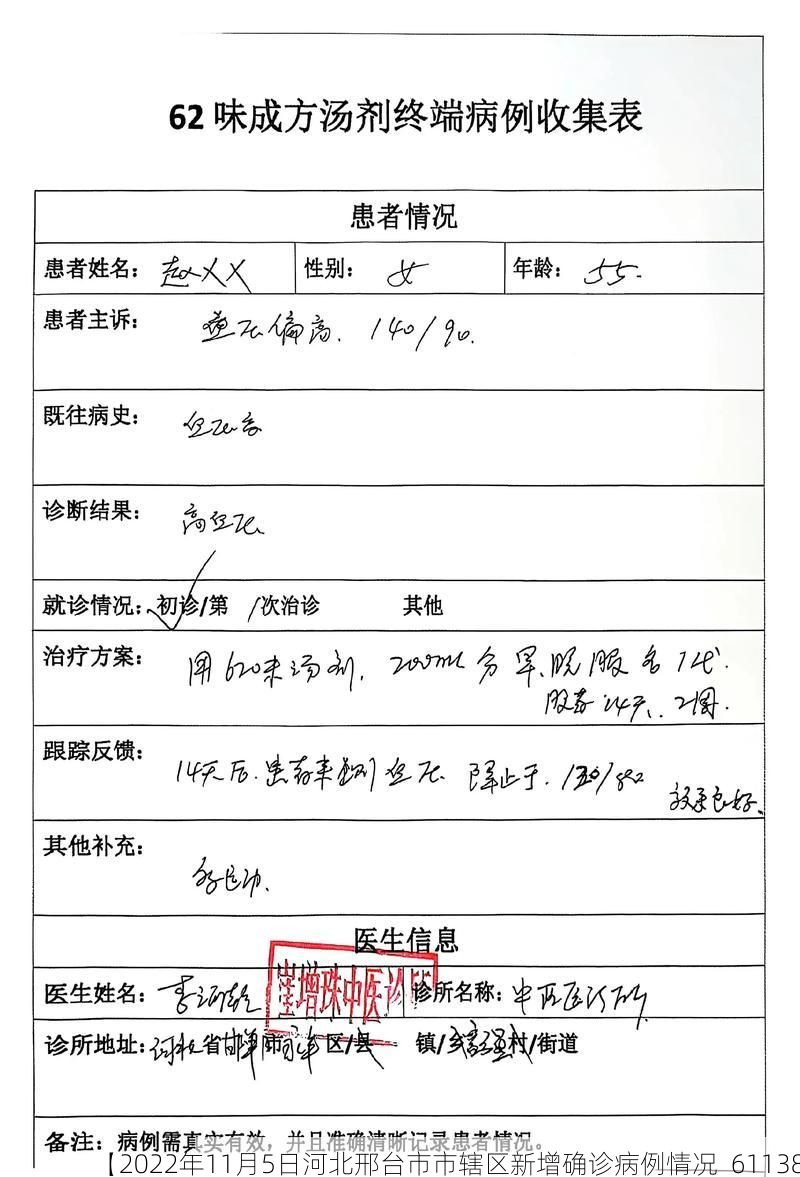 62 味成方汤剂终端病例收集表
患者情况
患者姓名： 赵XX 性别： 女 年龄： 55.
患者主诉： 血压偏高. 140/90.
既往病史： 血压高
诊断结果： 高血压.
就诊情况：初诊/第 /次治诊 其他
治疗方案： 用 汤剂, 200ml 分早、晚服各1代.
服药14天、2周.
跟踪反馈： 14天后.患者来测血压 降止于.
效果良好.
其他补充：
医生信息
医生姓名： 李 崔增珠中医诊所 诊所名称： 中医医诊所
诊所地址：河北省邯郸市 区/县 镇/乡 村/街道
备注：病例需真实有效，并且准确清晰记录患者情况。
【2022年11月5日河北邢台市市辖区新增确诊病例情况_61138